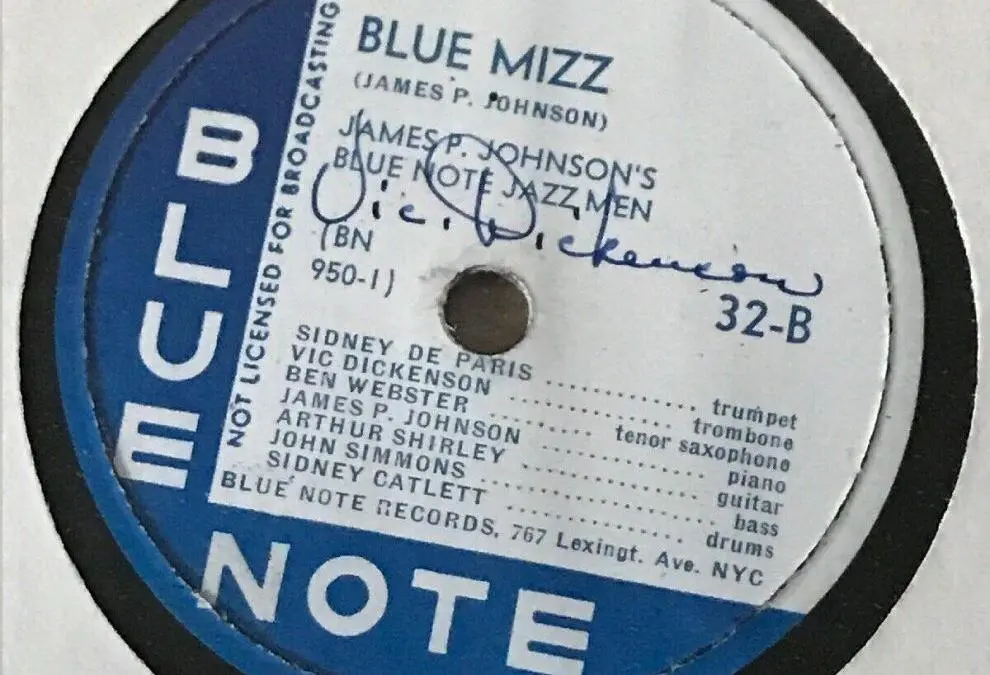 BLUE NOTE
NOT LICENSED FOR BROADCASTING
BLUE MIZZ
(JAMES P. JOHNSON)
JAMES P. JOHNSON'S
BLUE NOTE JAZZ MEN
Vic. Dickenson
(BN
950-1)
32-B
SIDNEY DE PARIS .............. trumpet
VIC DICKENSON .............. trombone
BEN WEBSTER .......... tenor saxophone
JAMES P. JOHNSON .............. piano
ARTHUR SHIRLEY .............. guitar
JOHN SIMMONS .............. bass
SIDNEY CATLETT .............. drums
BLUE NOTE RECORDS, 767 Lexingt. Ave. NYC